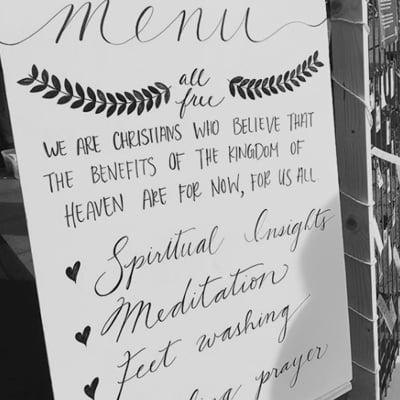 menu
all
free
WE ARE CHRISTIANS WHO BELIEVE THAT
THE BENEFITS OF THE KINGDOM OF
HEAVEN ARE FOR NOW, FOR US ALL
Spiritual Insights
Meditation
Feet washing
prayer